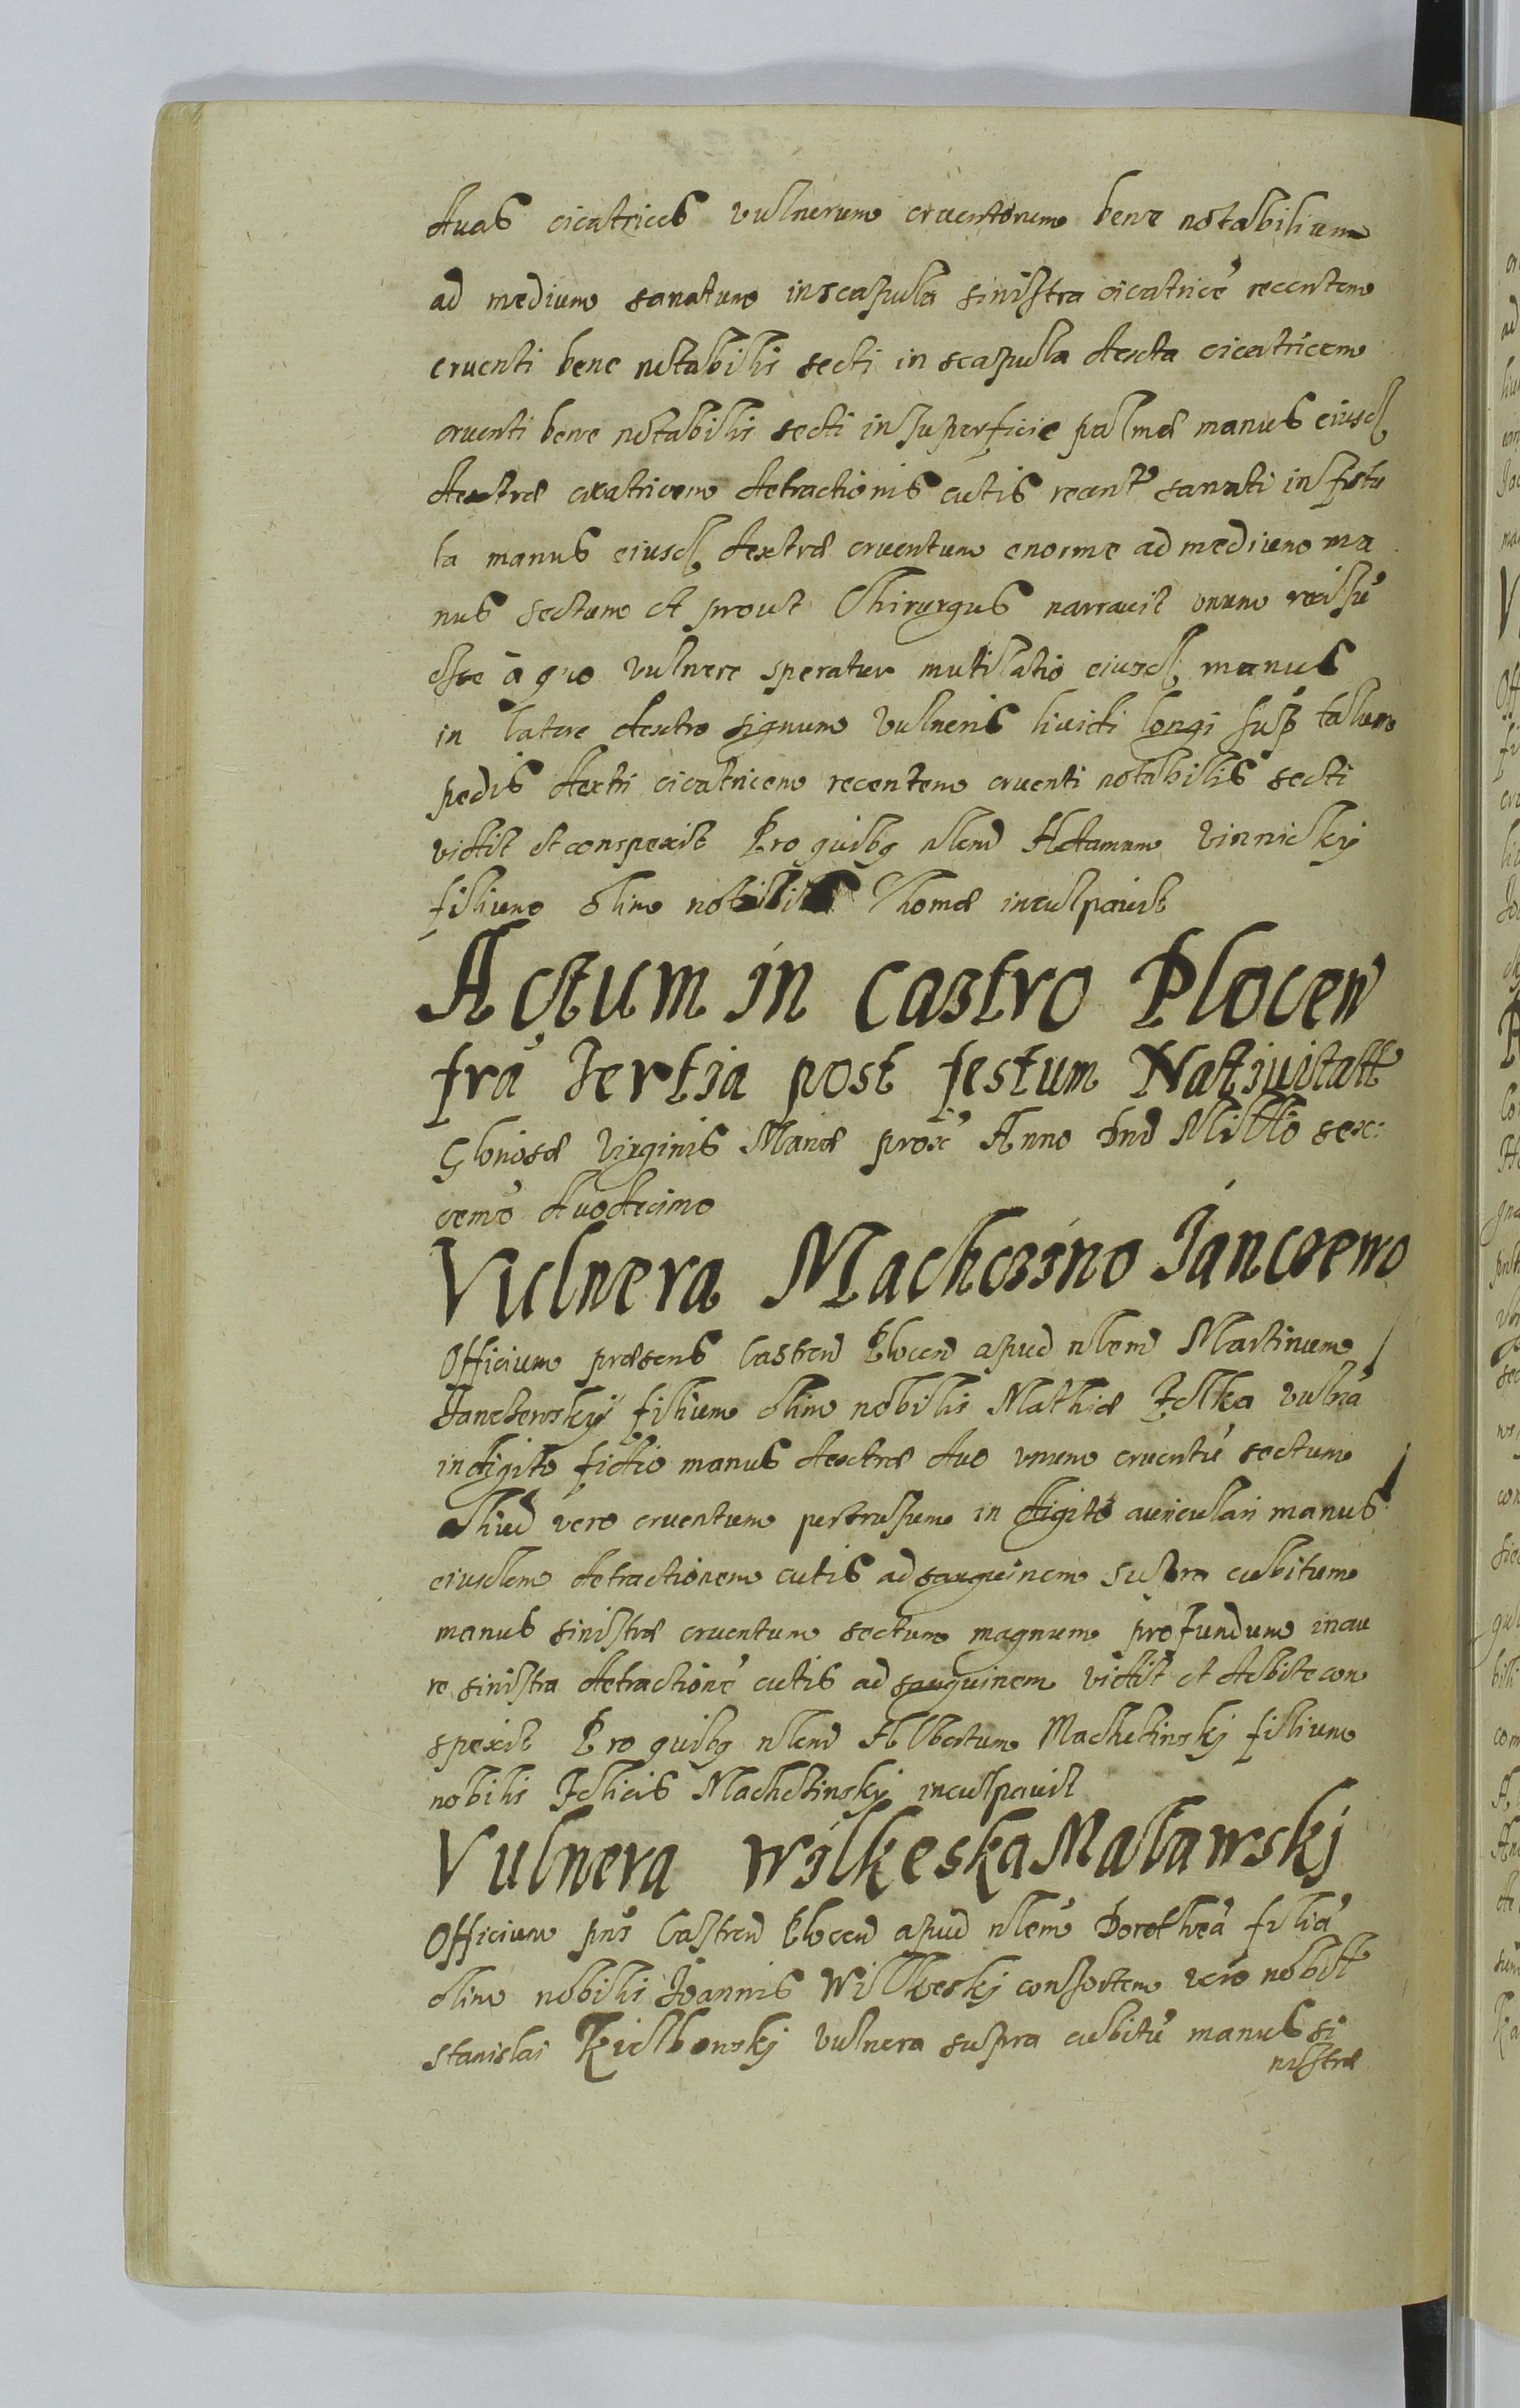 duas cicatrices vulnerum cruentorum bene notabilium
ad medium sanatum in scapula sinistra cicatricē recentem
cruenti bene notabilis secti in scapulla dexta cicatricem
cruenti bene notabilis secti in superficie palmæ manus eiusd
dextræ cicatricem detractionis cutis recent sanati in fistu
la manus eiusd dextræ cruentum enorme ad medium ma
nus sectum et prout Chirurgus narravit unum
esse à quo vulnere speratur mutilatio eiusd manus
in latere dextro signum vulneris lividi longi sup talum
pedis dextri cicatricem recentem cruenti notabilis secti
vidit et conspexit Pro quibq nlem Adamum Vinnickj
filium olim nobilis Thomæ inculpavit
Actum in Castro Plocen
fra Tertia post festum Nativitatt
Gloriosæ Virginis Mariæ prox Anno Dnd Millo sex
cento duodecimo
Vulnera Machczino Janczewo
Officium præsens Castren Plocen apud nlem Martinum
Janczewskij filium olim nobilis Mathiæ vulnā
in digito fictio manus dextræ duo unum cruentū sectum
Aliud vero cruentum pertrusum in digito auriculari manus
eiusdem detractionem cutis ad sanguinem supra cubitum
manus sinistræ cruentum sectum magnum profundum in au
re sinistra detractionē cutis ad sanguinem vidit et debite con
spexit Pro quibq nlem Albertum Machczinskj filium
nobilis Felicis Machczinskj inculpavit
Vulnera Wilkeska Malawskj
Officium pns Castren Plocen apud nlem Dorotheā filiā
olim nobilis Joannis Wilkeskj consortem vero nobil
Stanislai Kielbowskj vulnera supra cubitū manus si
nistræ